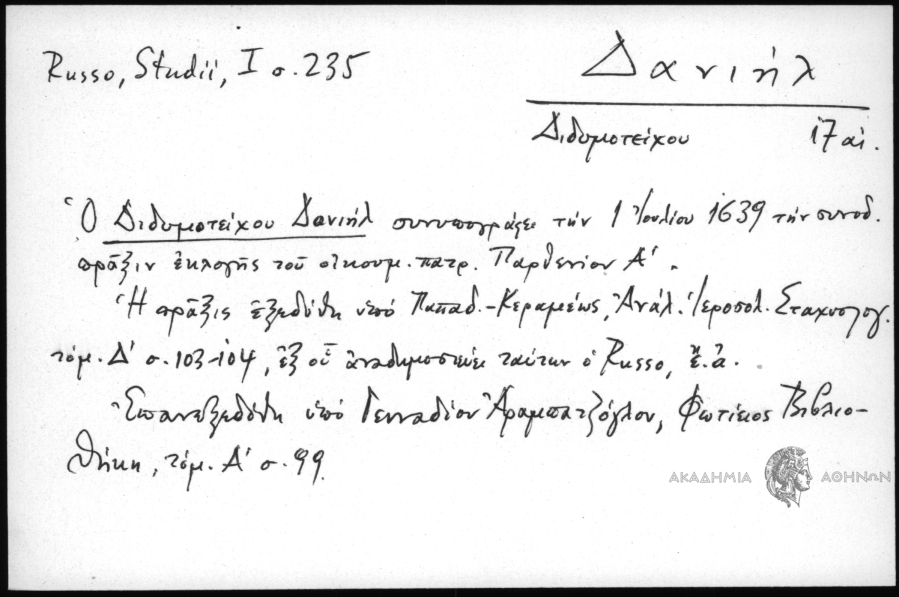 Russo, Studii, I σ. 235
Δανιήλ
Διδυμοτείχου 17 αἰ.
Ὁ Διδυμοτείχου Δανιήλ συνυπογράφει τήν 1 Ἰουλίου 1639 τήν συνοδ.
πρᾶξιν ἐκλογῆς τοῦ οἰκουμ. πατρ. Παρθενίου Α΄.
Ἡ πρᾶξις ἐξεδόθη ὑπό Παπαδ.-Κεραμέως, Ἀνάλ. Ἱεροσολ. Σταχυολογ.
τόμ. Δ΄ σ. 103-104, ἐξ οὗ ἀναδημοσιεύει ταύτην ὁ Russo, ἔ.ἀ.
Ἐπανεξεδόθη ὑπό Γενναδίου Ἀραμπατζόγλου, Φωτίειος Βιβλιο-
θήκη, τόμ. Α΄ σ. 99.
ΑΚΑΔΗΜΙΑ ΑΘΗΝΩΝ